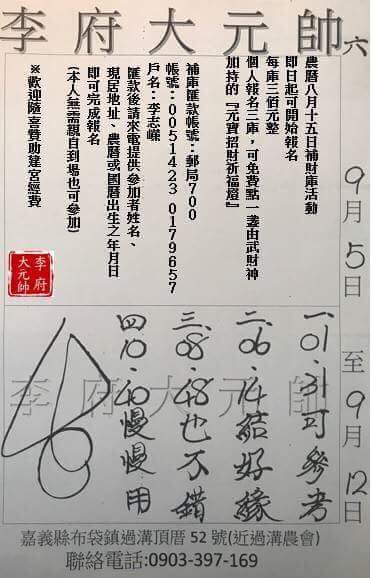 李府大元帥
六
農曆八月十五日補財庫活動
即日起可開始報名
每庫三佰元整
個人報名三庫，可免費點一盞由武財神
加持的『元寶招財祈福燈』
補庫匯款帳號：郵局700
帳號：0051423 0179657
戶名：李志嶸
匯款後請來電提供參加者姓名、
現居地址、農曆或國曆出生之年月日
即可完成報名
(本人無需親自到場也可參加)
※歡迎隨喜贊助建宮經費
李府
大元帥
9月5日至9月12日
李府大元帥
一.01.31可參考
二.06.14結好緣
三.08.48也不錯
四.10.40慢慢用
嘉義縣布袋鎮過溝頂厝52號(近過溝農會)
聯絡電話:0903-397-169